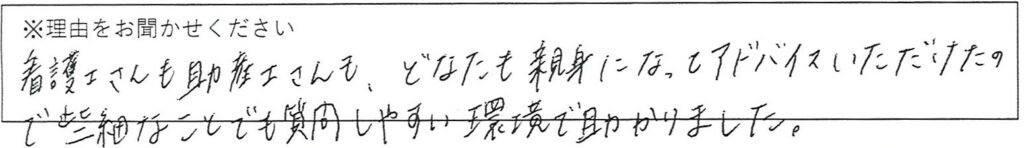 ※理由をお聞かせください
看護士さんも助産士さんも、どなたも親身になってアドバイスいただけたの
で些細なことでも質問しやすい環境で助かりました。